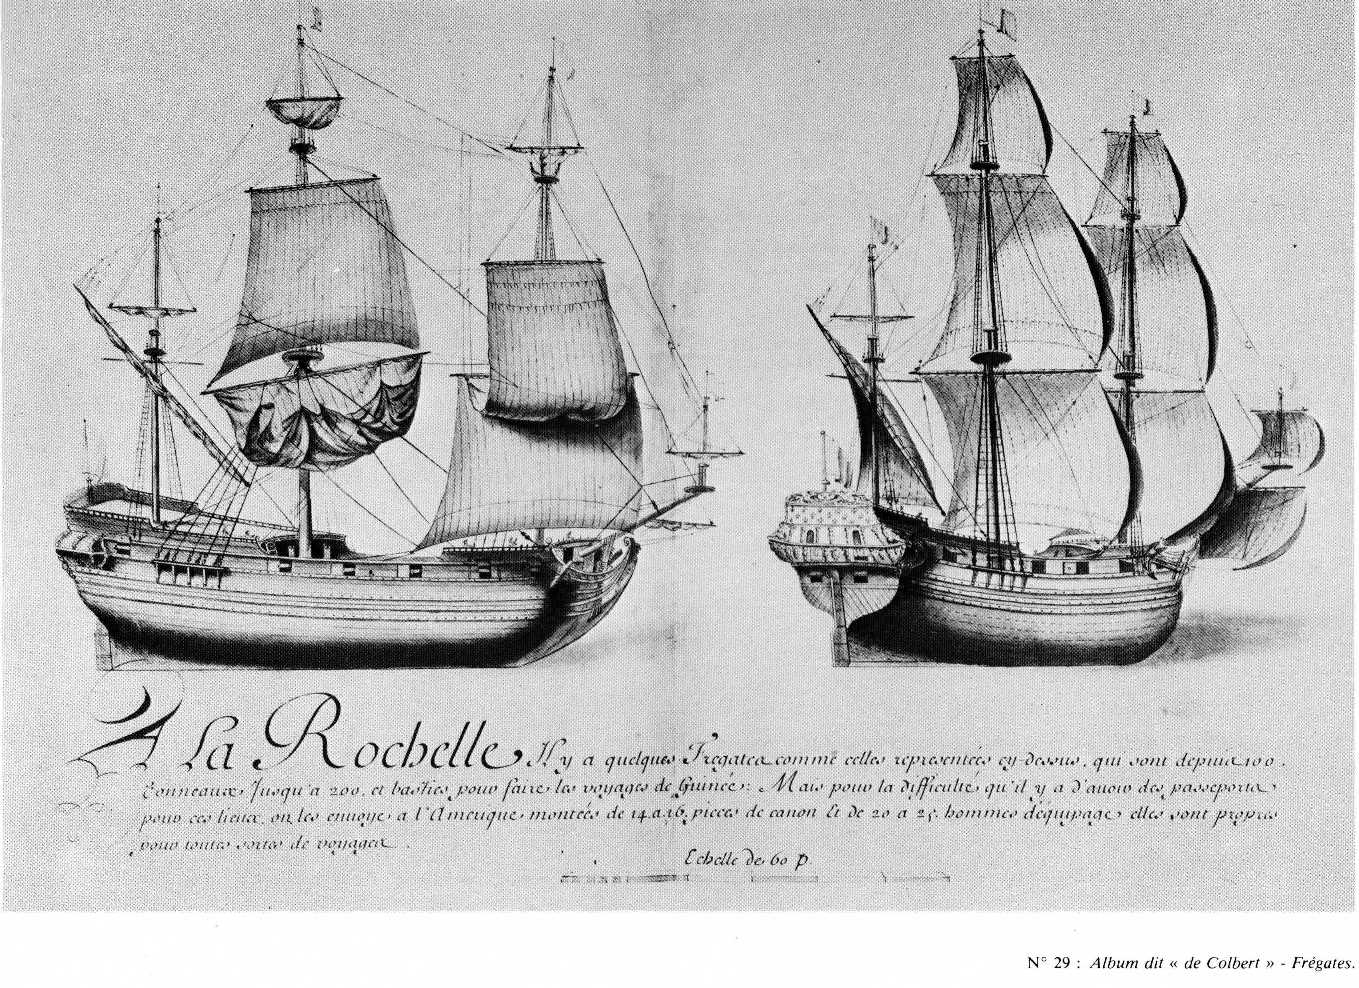 A la Rochelle, Il y a quelques Fregates comme celles representées cy-dessus, qui sont depuis 100.
Tonneaux, Jusqu'a 200. et basties pour faire les voyages de Guinée: Mais pour la difficulté qu'il y a d'avoir des passeports,
pour ces lieux, on les envoye a l'Amerique, montées de 14. a 16. pieces de canon Et de 20 a 25. hommes d'équipage, elles sont propres
pour toutes sortes de voyages.
Echelle de 60 p.
N° 29 : Album dit « de Colbert » - Frégates.